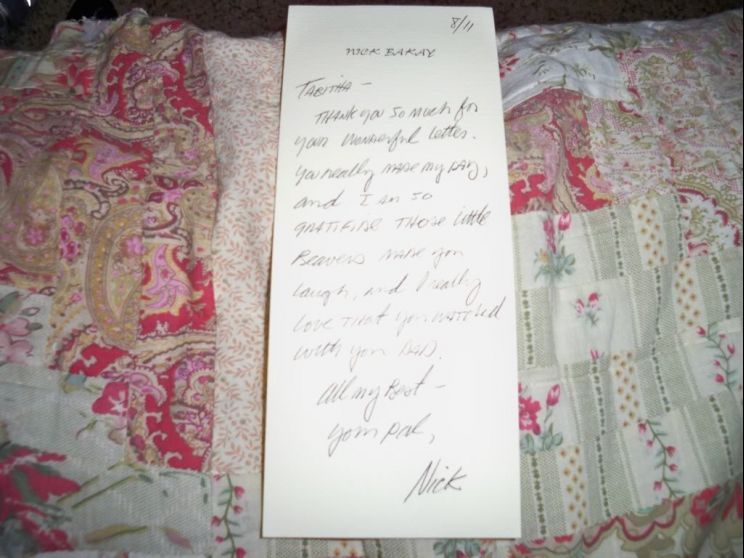 8/11
NICK BAKAY
TABITHA -
THANK YOU SO MUCH for
your wonderful letter.
You really MADE MY DAY,
and I AM SO
GRATIFIED THOSE little
Beavers MADE you
laugh, and I really
love THAT you WATCHED
with your DAD.
All my Best -
your pal,
Nick